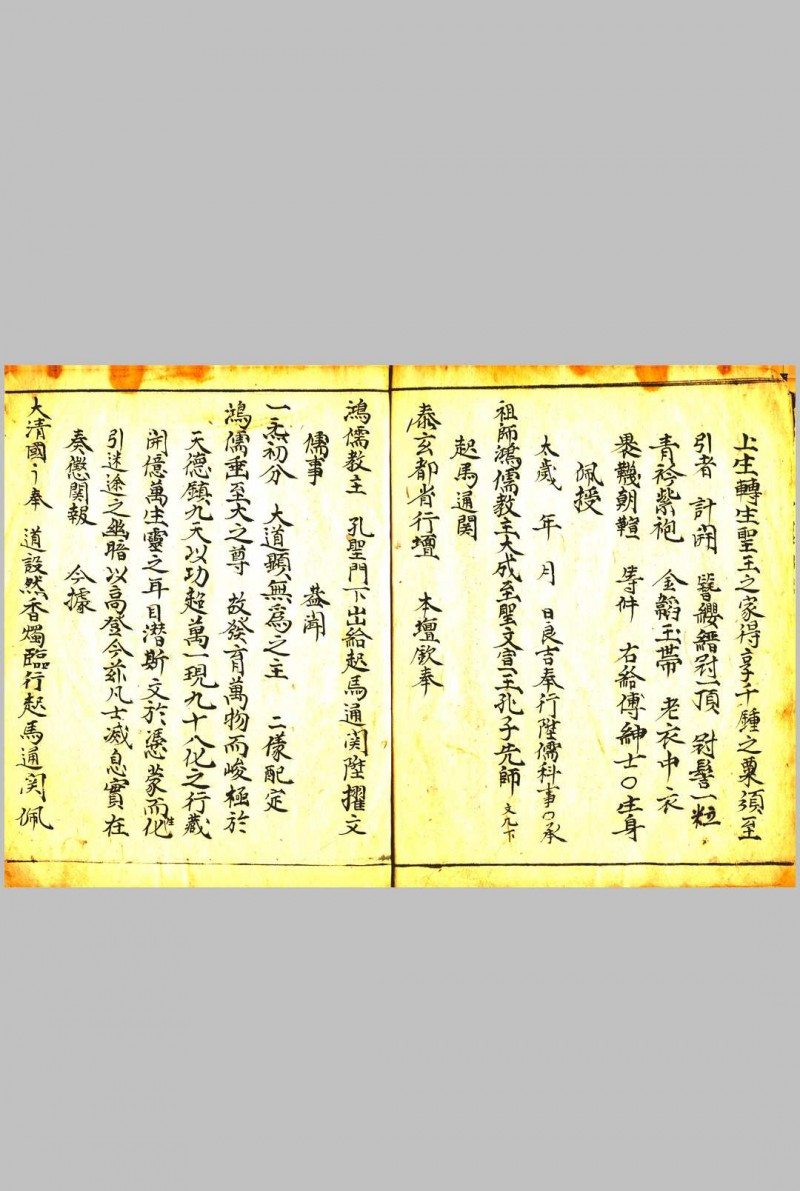 上生轉生聖王之家得享千鍾之粟須至
引者 計開 簪纓縉冠一頂 冠髻一粒
青衿紫袍 金韜玉帶 老衣中衣
裹韈朝鞾 等件 右給傅紳士〇生身
佩授
太歲 年 月 日良吉奉行陞儒科事〇承
祖師鴻儒教主大成至聖文宣王孔子先師 文九下
起馬通関
泰玄都省行壇 本壇欽奉
鴻儒教主 孔聖門下出給起馬通関陞擢文
儒事 葢聞
一炁初分 大道顕無爲之主 二儀配定
鴻儒垂至大之尊 故發育萬物而峻極於
天德鎮九天以功超萬一現九十八化之行藏
開億萬生靈之耳目潜斯文於憑蒙而化性
引迷途之幽暗以高登今茲凡士滅息實在
奏懲関報 今據
大清國々奉 道設然香燭臨行起馬通関佩